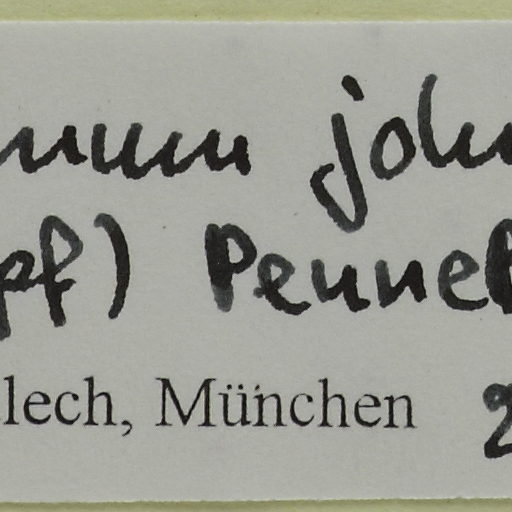 num joh
pf) Pennel
lech, München 2